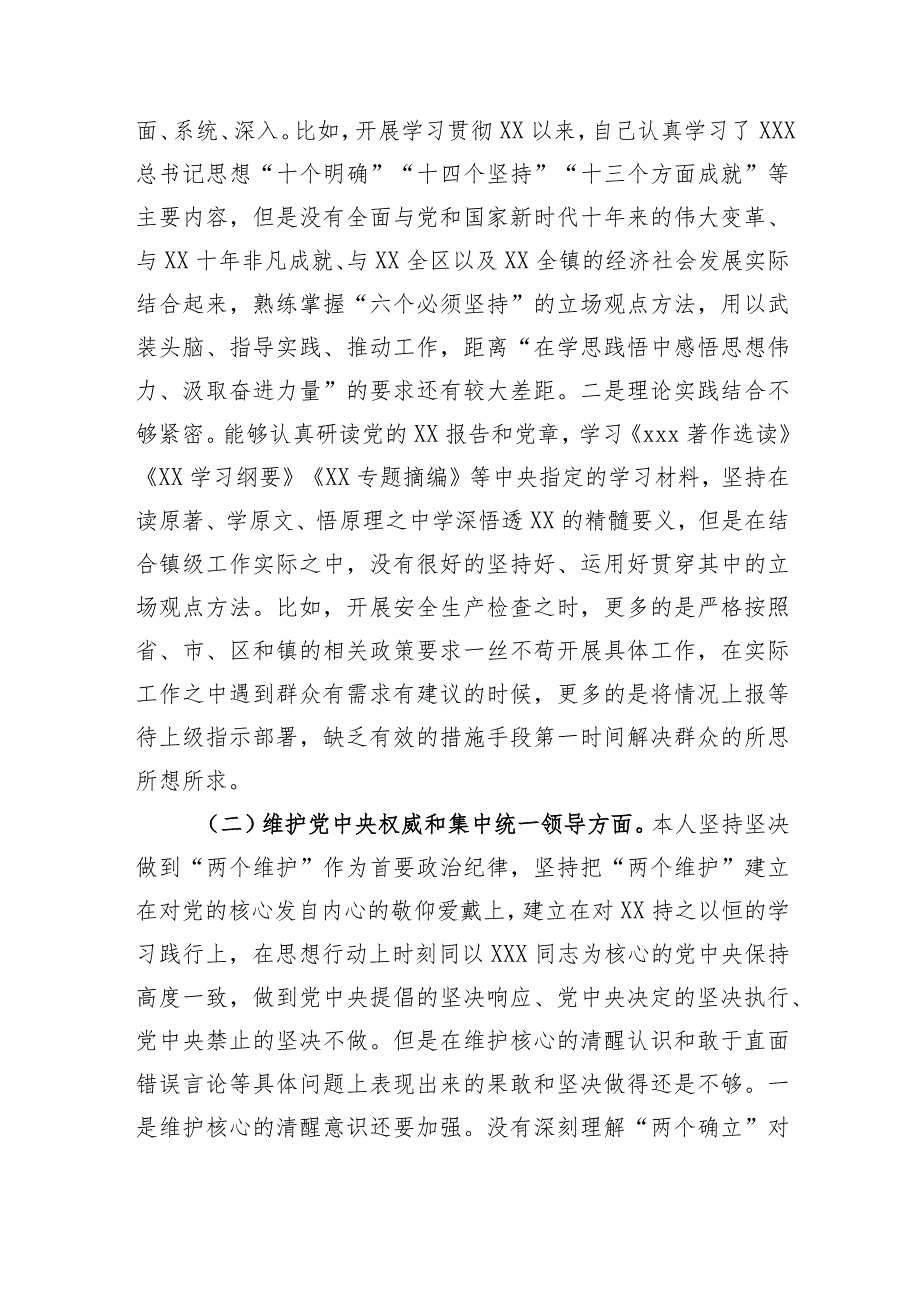 面、系统、深入。比如，开展学习贯彻XX以来，自己认真学习了XXX
总书记思想“十个明确”“十四个坚持”“十三个方面成就”等
主要内容，但是没有全面与党和国家新时代十年来的伟大变革、
与XX十年非凡成就、与XX全区以及XX全镇的经济社会发展实际
结合起来，熟练掌握“六个必须坚持”的立场观点方法，用以武
装头脑、指导实践、推动工作，距离“在学思践悟中感悟思想伟
力、汲取奋进力量”的要求还有较大差距。二是理论实践结合不
够紧密。能够认真研读党的XX报告和党章，学习《xxx著作选读》
《XX学习纲要》《XX专题摘编》等中央指定的学习材料，坚持在
读原著、学原文、悟原理之中学深悟透XX的精髓要义，但是在结
合镇级工作实际之中，没有很好的坚持好、运用好贯穿其中的立
场观点方法。比如，开展安全生产检查之时，更多的是严格按照
省、市、区和镇的相关政策要求一丝不苟开展具体工作，在实际
工作之中遇到群众有需求有建议的时候，更多的是将情况上报等
待上级指示部署，缺乏有效的措施手段第一时间解决群众的所思
所想所求。
（二）维护党中央权威和集中统一领导方面。本人坚持坚决
做到“两个维护”作为首要政治纪律，坚持把“两个维护”建立
在对党的核心发自内心的敬仰爱戴上，建立在对XX持之以恒的学
习践行上，在思想行动上时刻同以XXX同志为核心的党中央保持
高度一致，做到党中央提倡的坚决响应、党中央决定的坚决执行、
党中央禁止的坚决不做。但是在维护核心的清醒认识和敢于直面
错误言论等具体问题上表现出来的果敢和坚决做得还是不够。一
是维护核心的清醒意识还要加强。没有深刻理解“两个确立”对